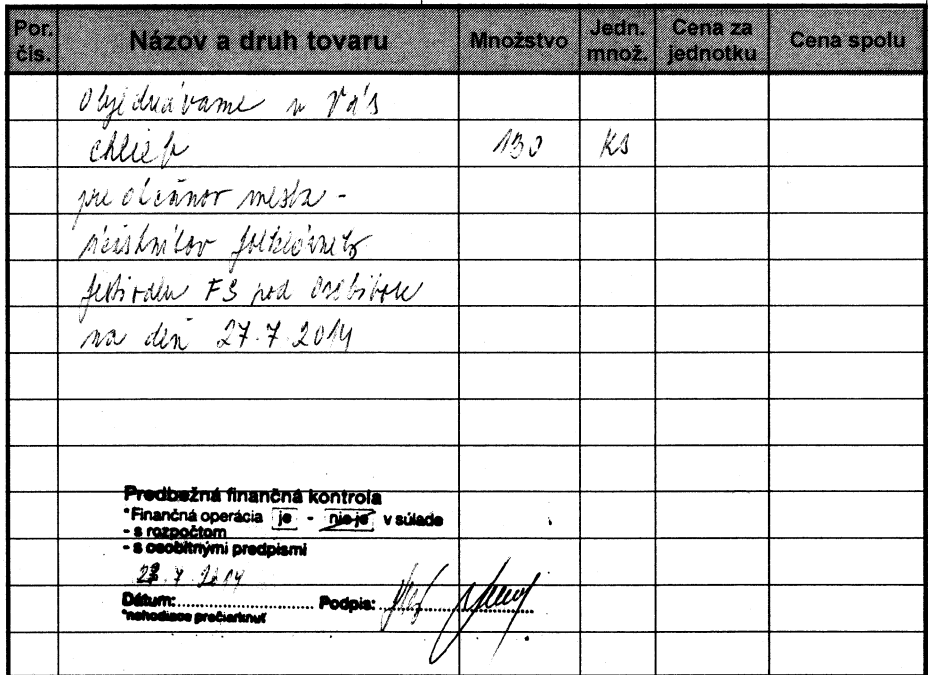 Por. čís. Názov a druh tovaru Množstvo Jedn. množ. Cena za jednotku Cena spolu
Objednávame u Vás
chlieb 130 ks
pre občanov mesta -
účastníkov folklórneho
festivalu FS pod
na deň 27.7.2014
Predbežná finančná kontrola
*Finančná operácia je - nie je v súlade
- s rozpočtom
- s osobitnými predpismi
7 2014
Dátum: Podpis:
*nehodiace prečiarknuť